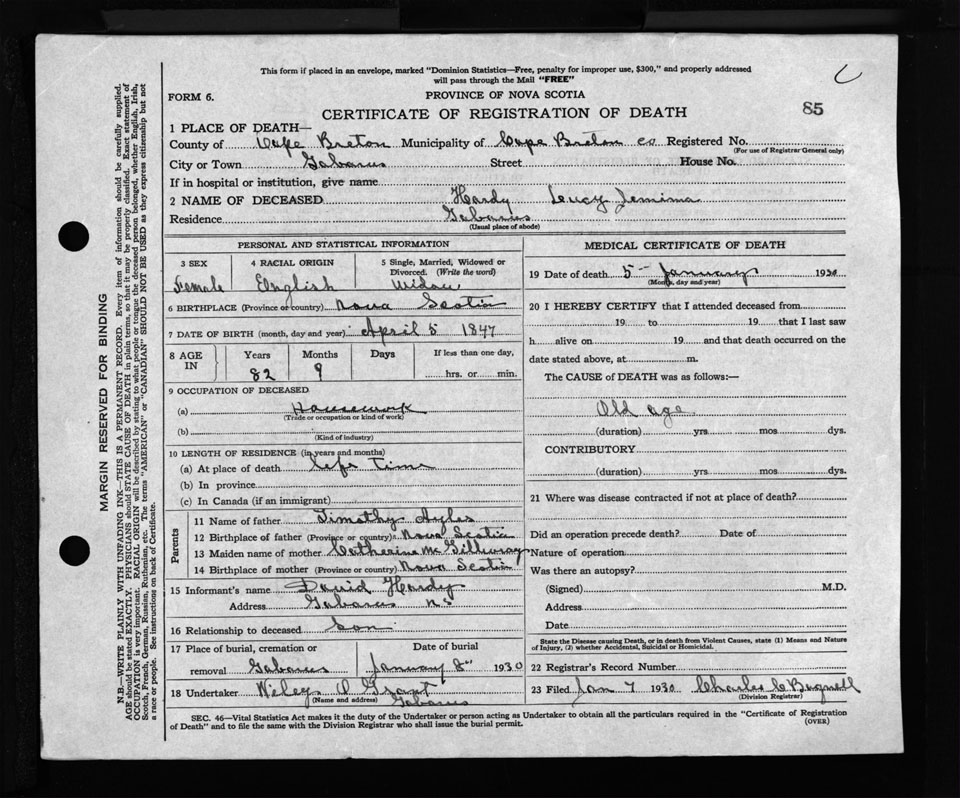 This form if placed in an envelope, marked "Dominion Statistics—Free, penalty for improper use, $300," and properly addressed
will pass through the Mail "FREE"
FORM 6.
PROVINCE OF NOVA SCOTIA
CERTIFICATE OF REGISTRATION OF DEATH
85
1 PLACE OF DEATH—
County of Cape Breton Municipality of Cape Breton co Registered No.
(For use of Registrar General only)
City or Town Gabarus Street House No.
If in hospital or institution, give name
2 NAME OF DECEASED Hardy Lucy Jemima
Residence Gabarus
(Usual place of abode)
PERSONAL AND STATISTICAL INFORMATION
3 SEX 4 RACIAL ORIGIN 5 Single, Married, Widowed or Divorced. (Write the word)
Female English Widow
6 BIRTHPLACE (Province or country) Nova Scotia
7 DATE OF BIRTH (month, day and year) April 5 1847
8 AGE IN Years Months Days If less than one day,
82 9 hrs. or min.
9 OCCUPATION OF DECEASED
(a) Housework
(Trade or occupation or kind of work)
(b)
(Kind of industry)
10 LENGTH OF RESIDENCE (in years and months)
(a) At place of death Life Time
(b) In province
(c) In Canada (if an immigrant)
Parents
11 Name of father Timothy
12 Birthplace of father (Province or country) Nova Scotia
13 Maiden name of mother Catherine Mc Gillvray
14 Birthplace of mother (Province or country) Nova Scotia
15 Informant's name David Hardy
Address Gabarus NS
16 Relationship to deceased Son
17 Place of burial, cremation or removal Gabarus
Date of burial January 8" 1930
18 Undertaker Grant
(Name and address) Gabarus
MEDICAL CERTIFICATE OF DEATH
19 Date of death 5 January 1930
(Month, day and year)
20 I HEREBY CERTIFY that I attended deceased from
19 to 19 that I last saw
h alive on 19 and that death occurred on the
date stated above, at m.
The CAUSE of DEATH was as follows:—
Old age
(duration) yrs mos dys.
CONTRIBUTORY
(duration) yrs. mos dys.
21 Where was disease contracted if not at place of death?
Did an operation precede death? Date of
Nature of operation
Was there an autopsy?
(Signed) M.D.
Address
Date
State the Disease causing Death, or in death from Violent Causes, state (1) Means and Nature
of Injury, (2) whether Accidental, Suicidal or Homicidal.
22 Registrar's Record Number
23 Filed Jan 7 1930 Charles C Bagnell
(Division Registrar)
SEC. 46—Vital Statistics Act makes it the duty of the Undertaker or person acting as Undertaker to obtain all the particulars required in the "Certificate of Registration
of Death" and to file the same with the Division Registrar who shall issue the burial permit.
(OVER)
MARGIN RESERVED FOR BINDING
N.B.—WRITE PLAINLY WITH UNFADING INK—THIS IS A PERMANENT RECORD. Every item of information should be carefully supplied.
AGE should be stated EXACTLY. PHYSICIANS should STATE CAUSE OF DEATH in plain terms, so that it may be properly classified. Exact statement of
OCCUPATION is very important. RACIAL ORIGIN will be described by stating to what people or tongue the deceased person belonged, whether English, Irish,
Scotch, French, German, Russian, Ruthenian, etc. The terms "AMERICAN" or "CANADIAN" SHOULD NOT BE USED as they express citizenship but not
a race or people. See instructions on back of Certificate.